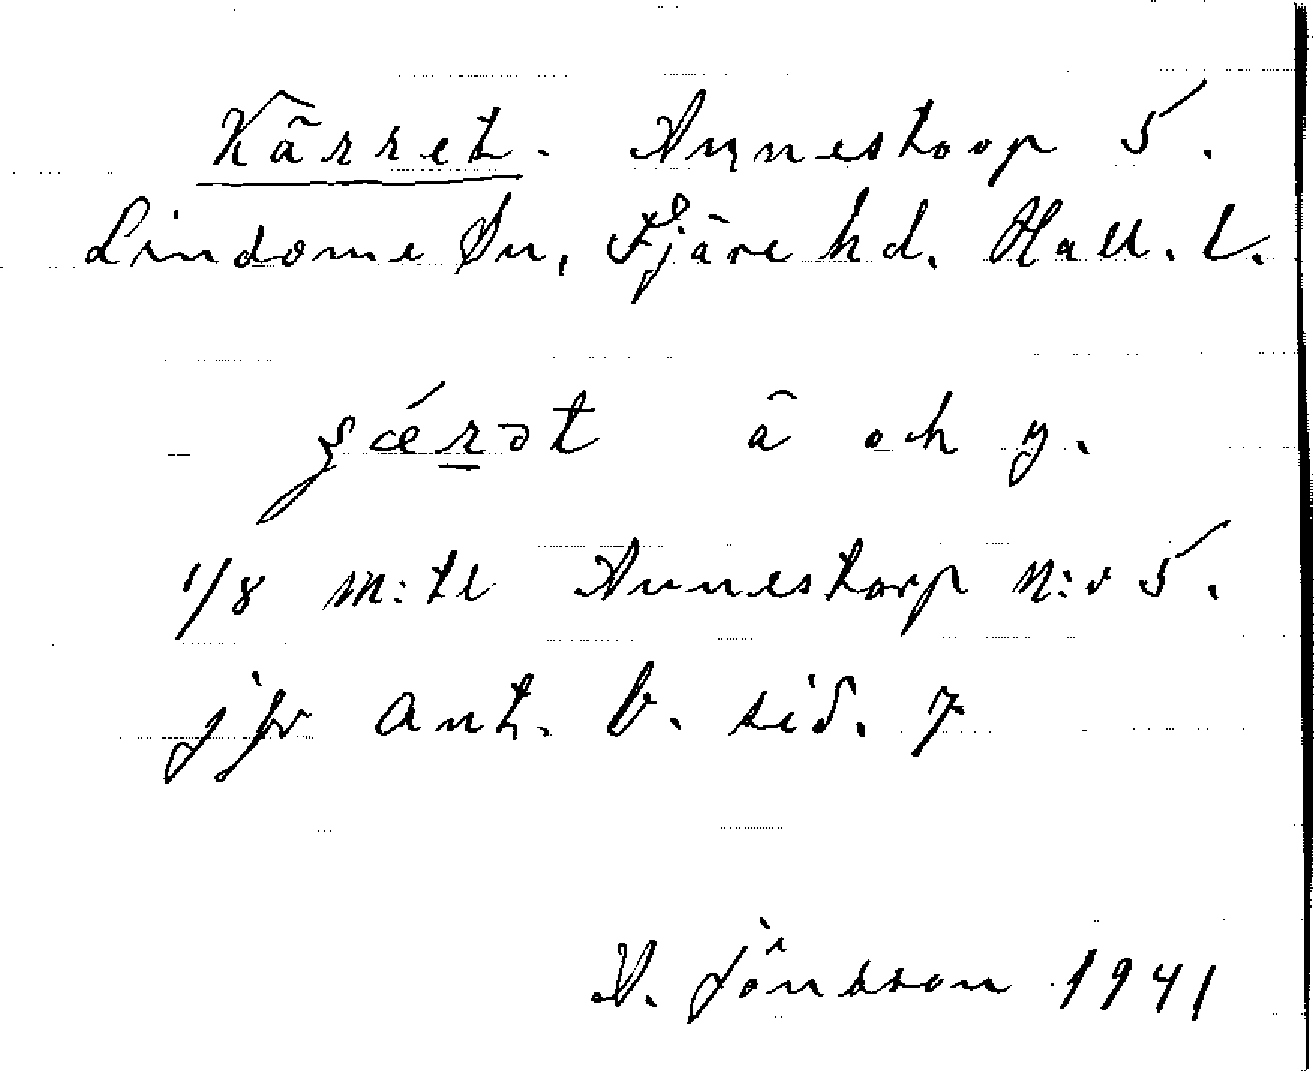 Kärret. Annestorp 5.
Lindome Sn, Fjäre hd. Hall. l.
å och y.
1/8 m:tl Annestorp N:o 5.
jfr Ant. b. sid. 7
A. Jönsson 1941